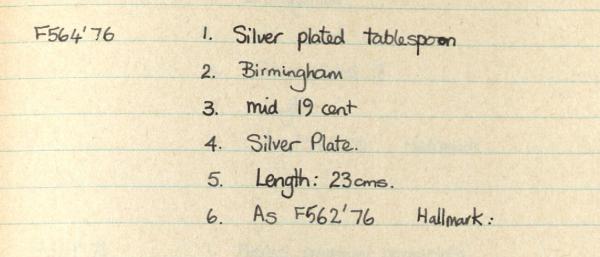 F564'76 1. Silver plated tablespoon
2. Birmingham
3. mid 19 cent
4. Silver Plate.
5. Length: 23cms.
6. As F562'76 Hallmark: